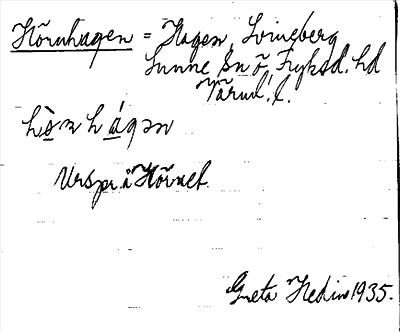 Hörnhagen = Hagen, Svineberg
Sunne sn ö, Fryksd. hd
Värml. l.
hò̱ɳhá̱gən
Urspr. i Hörnet.
Greta Hedin 1935.